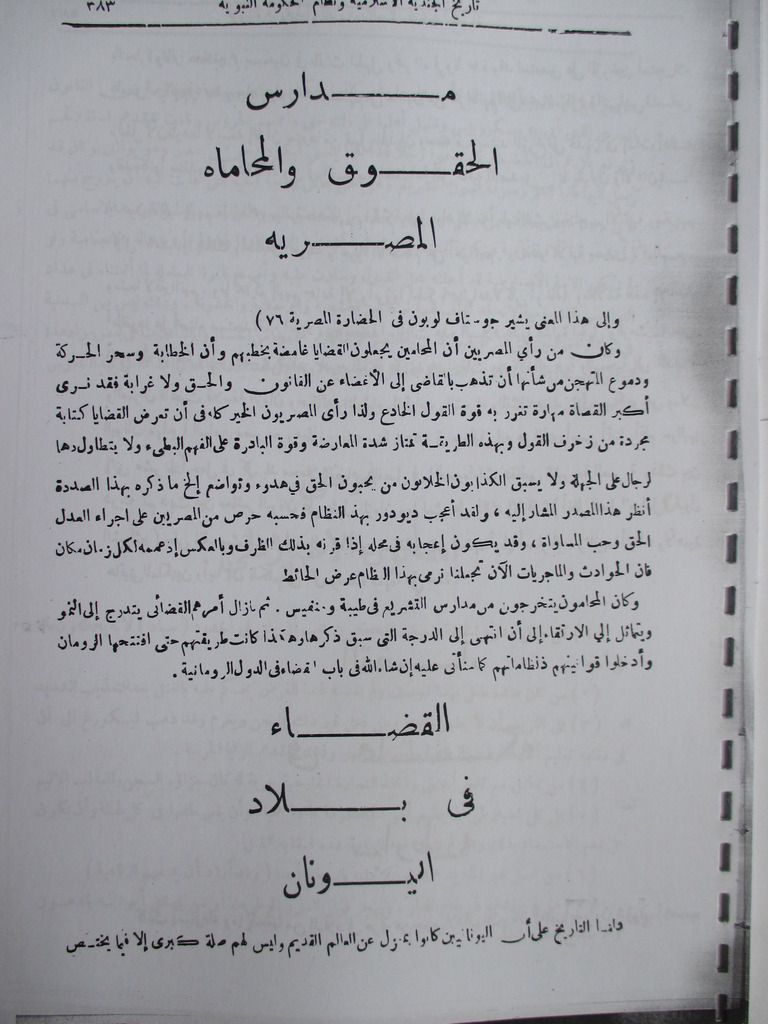 تاريخ الجندية الاسلامية ونظام الحكومة النبوية ٣٨٣
مـــدارس
الحقـــوق والمحاماه
المصـــريه
وإلى هذا المعنى يشير جوستاف لوبون فى الحضارة المصرية ٧٦ )
وكان من رأي المصريين أن المحامين يجعلون القضايا غامضة بخطبهم وأن الخطابة وسحر الحركة
ودموع المتهجن من شأنها أن تذهب بالقاضى إلى الأغضاء عن القانون والحق ولا غرابة فقد نرى
أكبر القضاة مهارة تغرر به قوة القول الخادع ولذا رأى المصريون الخير كله فى أن تعرض القضايا كتابة
مجردة من زخرف القول وبهذه الطريقة تمتاز شدة المعارضة وقوة البادرة على الفهم البطىء ولا يتطاول دها
لرجال على الجهلة ولا يسبق الكذابون الخلابون من يحبون الحق فى هدوء وتواضع إلخ ما ذكره بهذا الصددة
أنظر هذا المصدر المشار إليه ، ولقد أعجب ديودور بهذ النظام فحسبه حرص من المصريين على اجراء العدل
الحق وحب المساواة ، وقد يكون إعجابه فى محله إذا قرنه بذلك الظرف وبالعكس إذ عممه لكل زمان مكان
فان الحوادث والماجريات الآن تجعلنا نرمى بهذا النظام عرض الحائط
وكان المحامون يتخرجون من مدارس التشريع فى طيبة و منفيس . ثم مازال أمرهم القضائى يتدرج إلى النمو
ويتماثل إلي الارتقاء إلى أن انتهى إلى الدرجة التى سبق ذكرها وهكذا كانت طريقتهم حتى افتتحها الرومان
وأدخلوا قوانينهم ونظاماتهم كما سنأتى عليه إن شاء الله فى باب القضاء فى الدول الرومانية .
القضـــاء
فى بـــلاد
اليـــونان
التاريخ على أن اليونانيين كانوا بمعزل عن العالم القديم وليس لهم صلة كبرى إلا فيما يختص